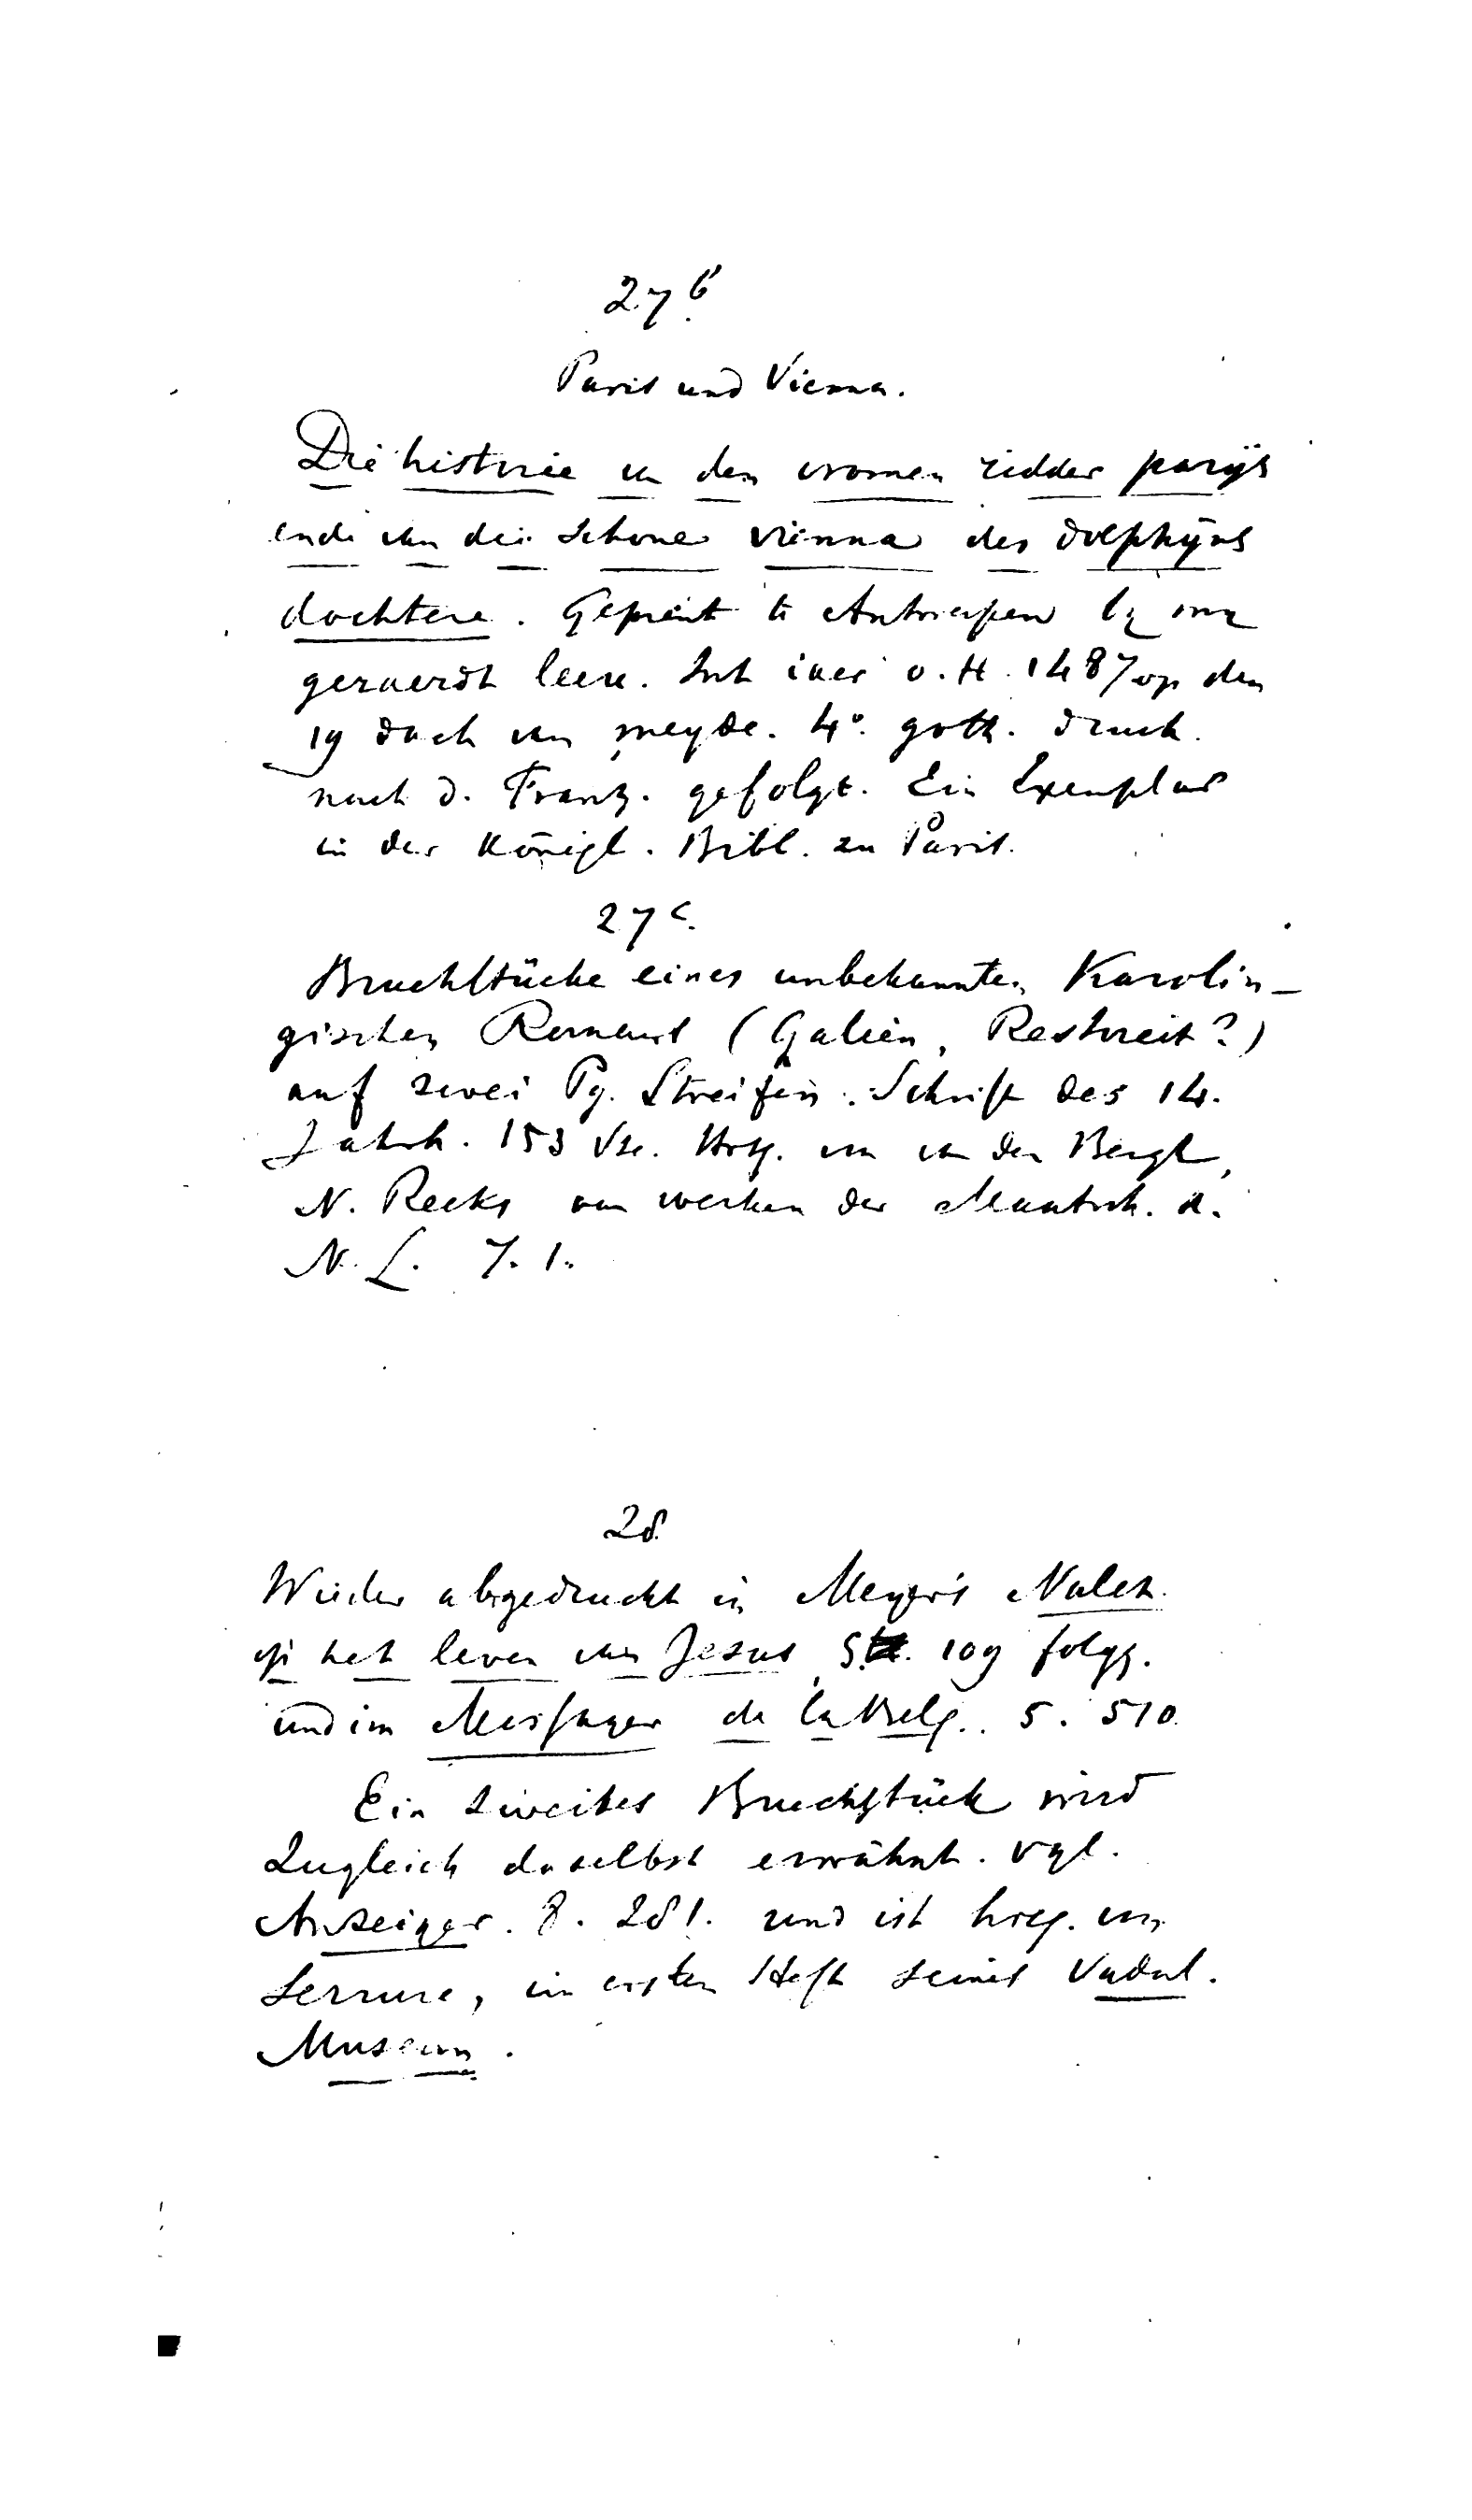 27b.
Paris und Vienna.
Die historie van den vromen ridder parijs
ende van die schone vienna des dolphijns
dochtere. Geprent te Antwerpen by my
geraerdt leeu. Int iaer o. H. 1487 op den
19 dach van meyde. 4°. goth. Druck.
nach d. Franz. gefolgt. Ein Exemplar
in der Königl. Bibl. zu Paris.
27c.
Bruchstücke eines unbekannten Karolin-
gischen Romans (Galien, Restoreit?)
auf zwei Pg. Streifen. Schrift des 14.
Jahrh. 153 Vse. Hrsg. von van den Bergh,
N. Reeks van werken der Maatsch. d.
N. L. 7. 1.
28.
Wieder abgedruckt in Meyer's Nalez.
op het leven van Jesus, S. 109 folgg.
und im Messager de la Belg. 5. 510.
Ein zweites Bruchstück wird
zugleich daselbst erwähnt. vgl.
Anzeiger. 8. 281. und ist hrsg. von
Serrure, im ersten Heft seines Vadul.
Museum.